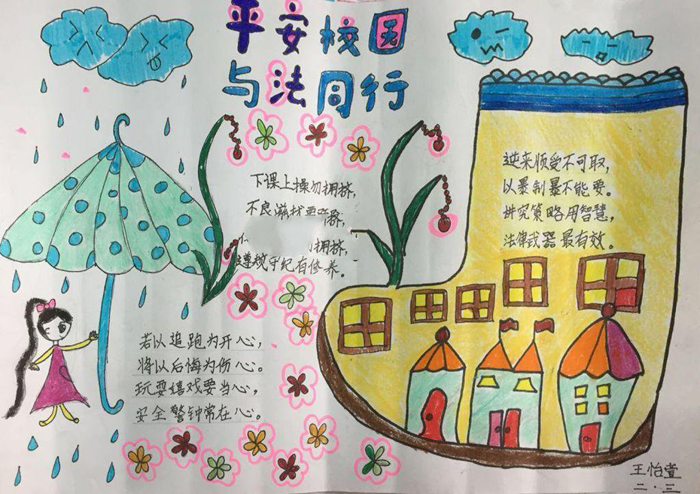 平安校园
与法同行
下课上操勿拥挤,
不良游戏要
拥挤,
守纪有修养。
逆来顺受不可取,
以暴制暴不能要。
讲究策略用智慧,
法律武器最有效。
若以追跑为开心,
将以后悔为伤心。
玩耍嬉戏要当心,
安全警钟常在心。
王怡萱
二·三